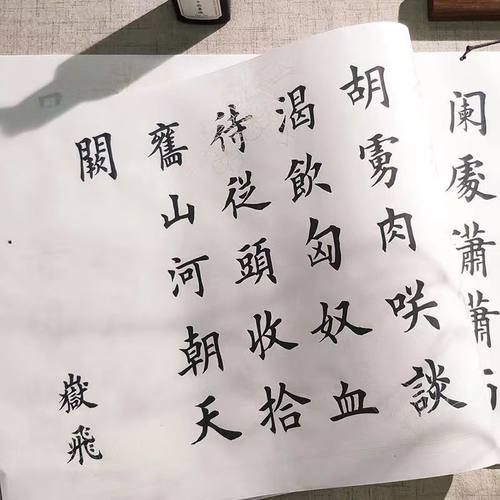 阑處瀟瀟
胡虜肉咲談
渴飲匈奴血
待從頭收拾
舊山河朝天
闕
嶽飛